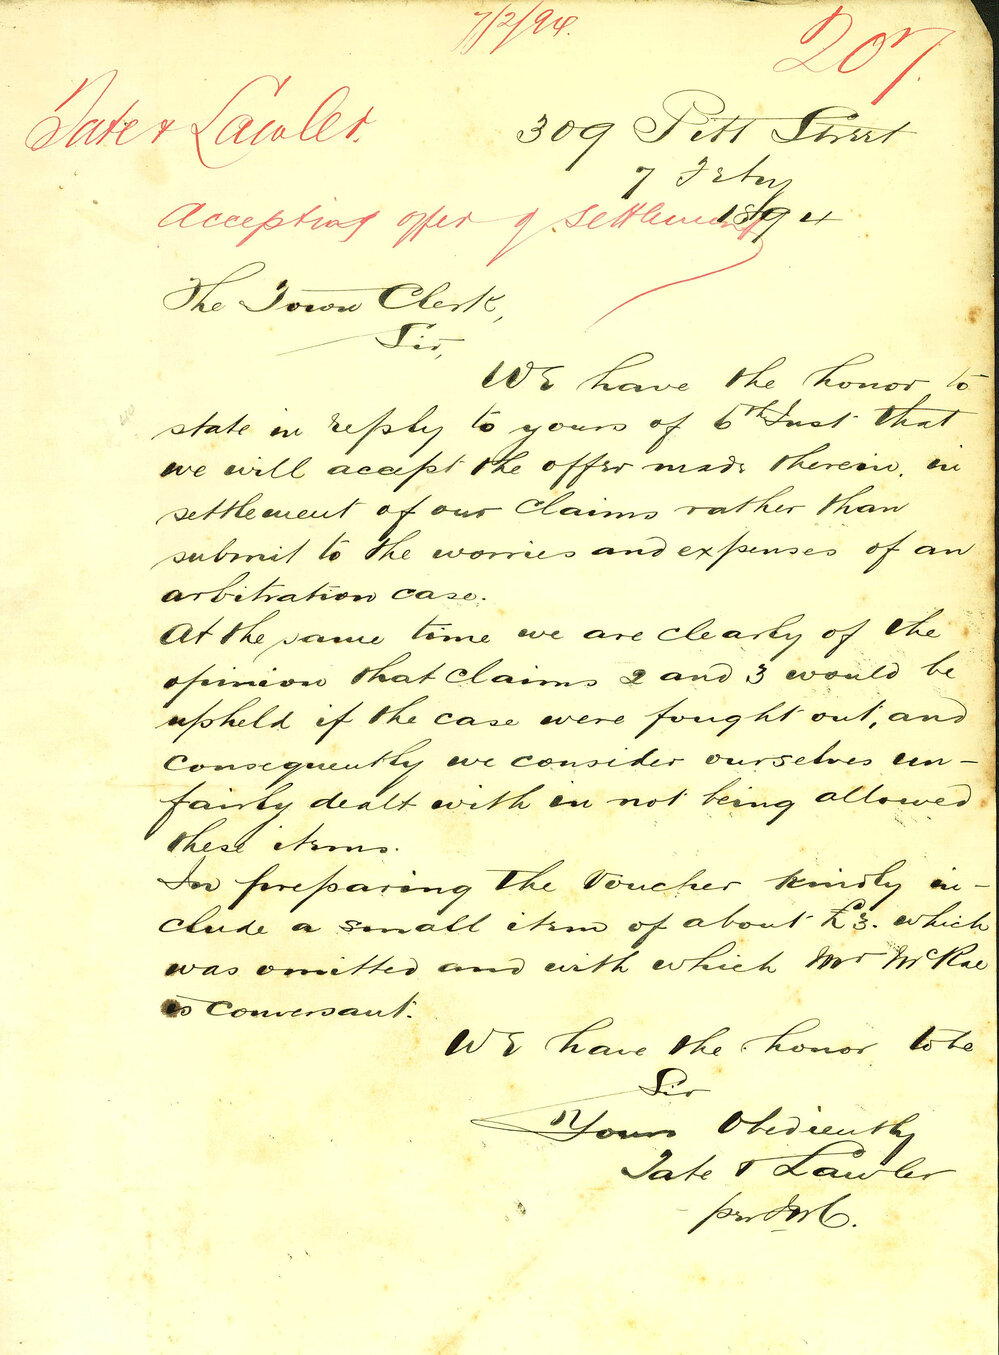 7/2/94.
207.
Tate & Lawler.
309 Pitt Street
7 Feby
1894
Accepting offer of settlement
The Town Clerk,
Sir,
We have the honor to
state in reply to yours of 6th Inst that
we will accept the offer made therein, in
settlement of our claims rather than
submit to the worries and expenses of an
arbitration case.
At the same time we are clearly of the
opinion that claims 2 and 3 would be
upheld if the case were fought out, and
consequently we consider ourselves un-
fairly dealt with in not being allowed
these items.
In preparing the Voucher kindly in-
clude a small item of about £3. which
was omitted and with which Mr McRae
is conversant.
We have the honor to be
Sir
Yours Obediently
Tate & Lawler
per